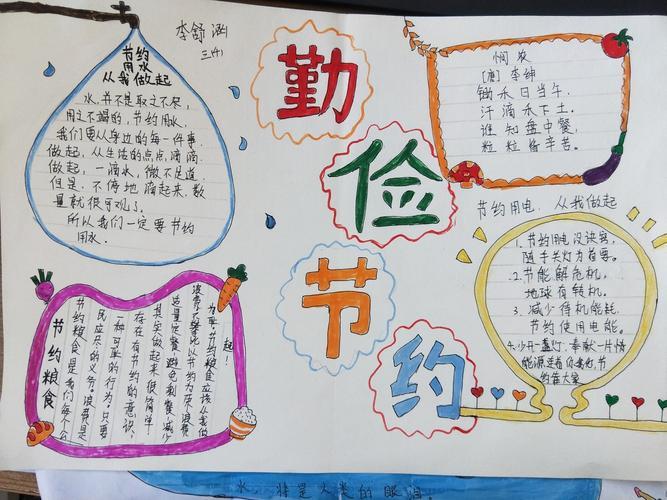 李舒涵
三(4)
节约
用水
从我做起
水,并不是取之不尽,
用之不竭的,节约用水,
我们要从身边的每一件事
做起,从生活的点点滴滴
做起,一滴水,微不足道.
但是.不停地滴起来,数
量就很可观了.
所以我们一定要节约
用水.
勤
俭
节
约
悯农
[唐]李绅
锄禾日当午,
汗滴禾下土.
谁知盘中餐,
粒粒皆辛苦.
节约用电,从我做起
1.节约用电没诀窍,
随手关灯为首要。
2.节能解危机,
地球有转机。
3.减少待机能耗,
节约使用电能。
4.少开一盏灯,奉献一片情
能源连着你我他,节
约靠大家
节约粮食
节约粮食是我们每个公
民应尽的义务!浪费是
一种可耻的行为.只要
存在有节约的意识,
其实做起来很简单
适量定餐,避免剩餐,减少
浪费,不攀比以节约为荣浪费
为耻节约粮食应该从我做
起!
水 将是人类的眼泪